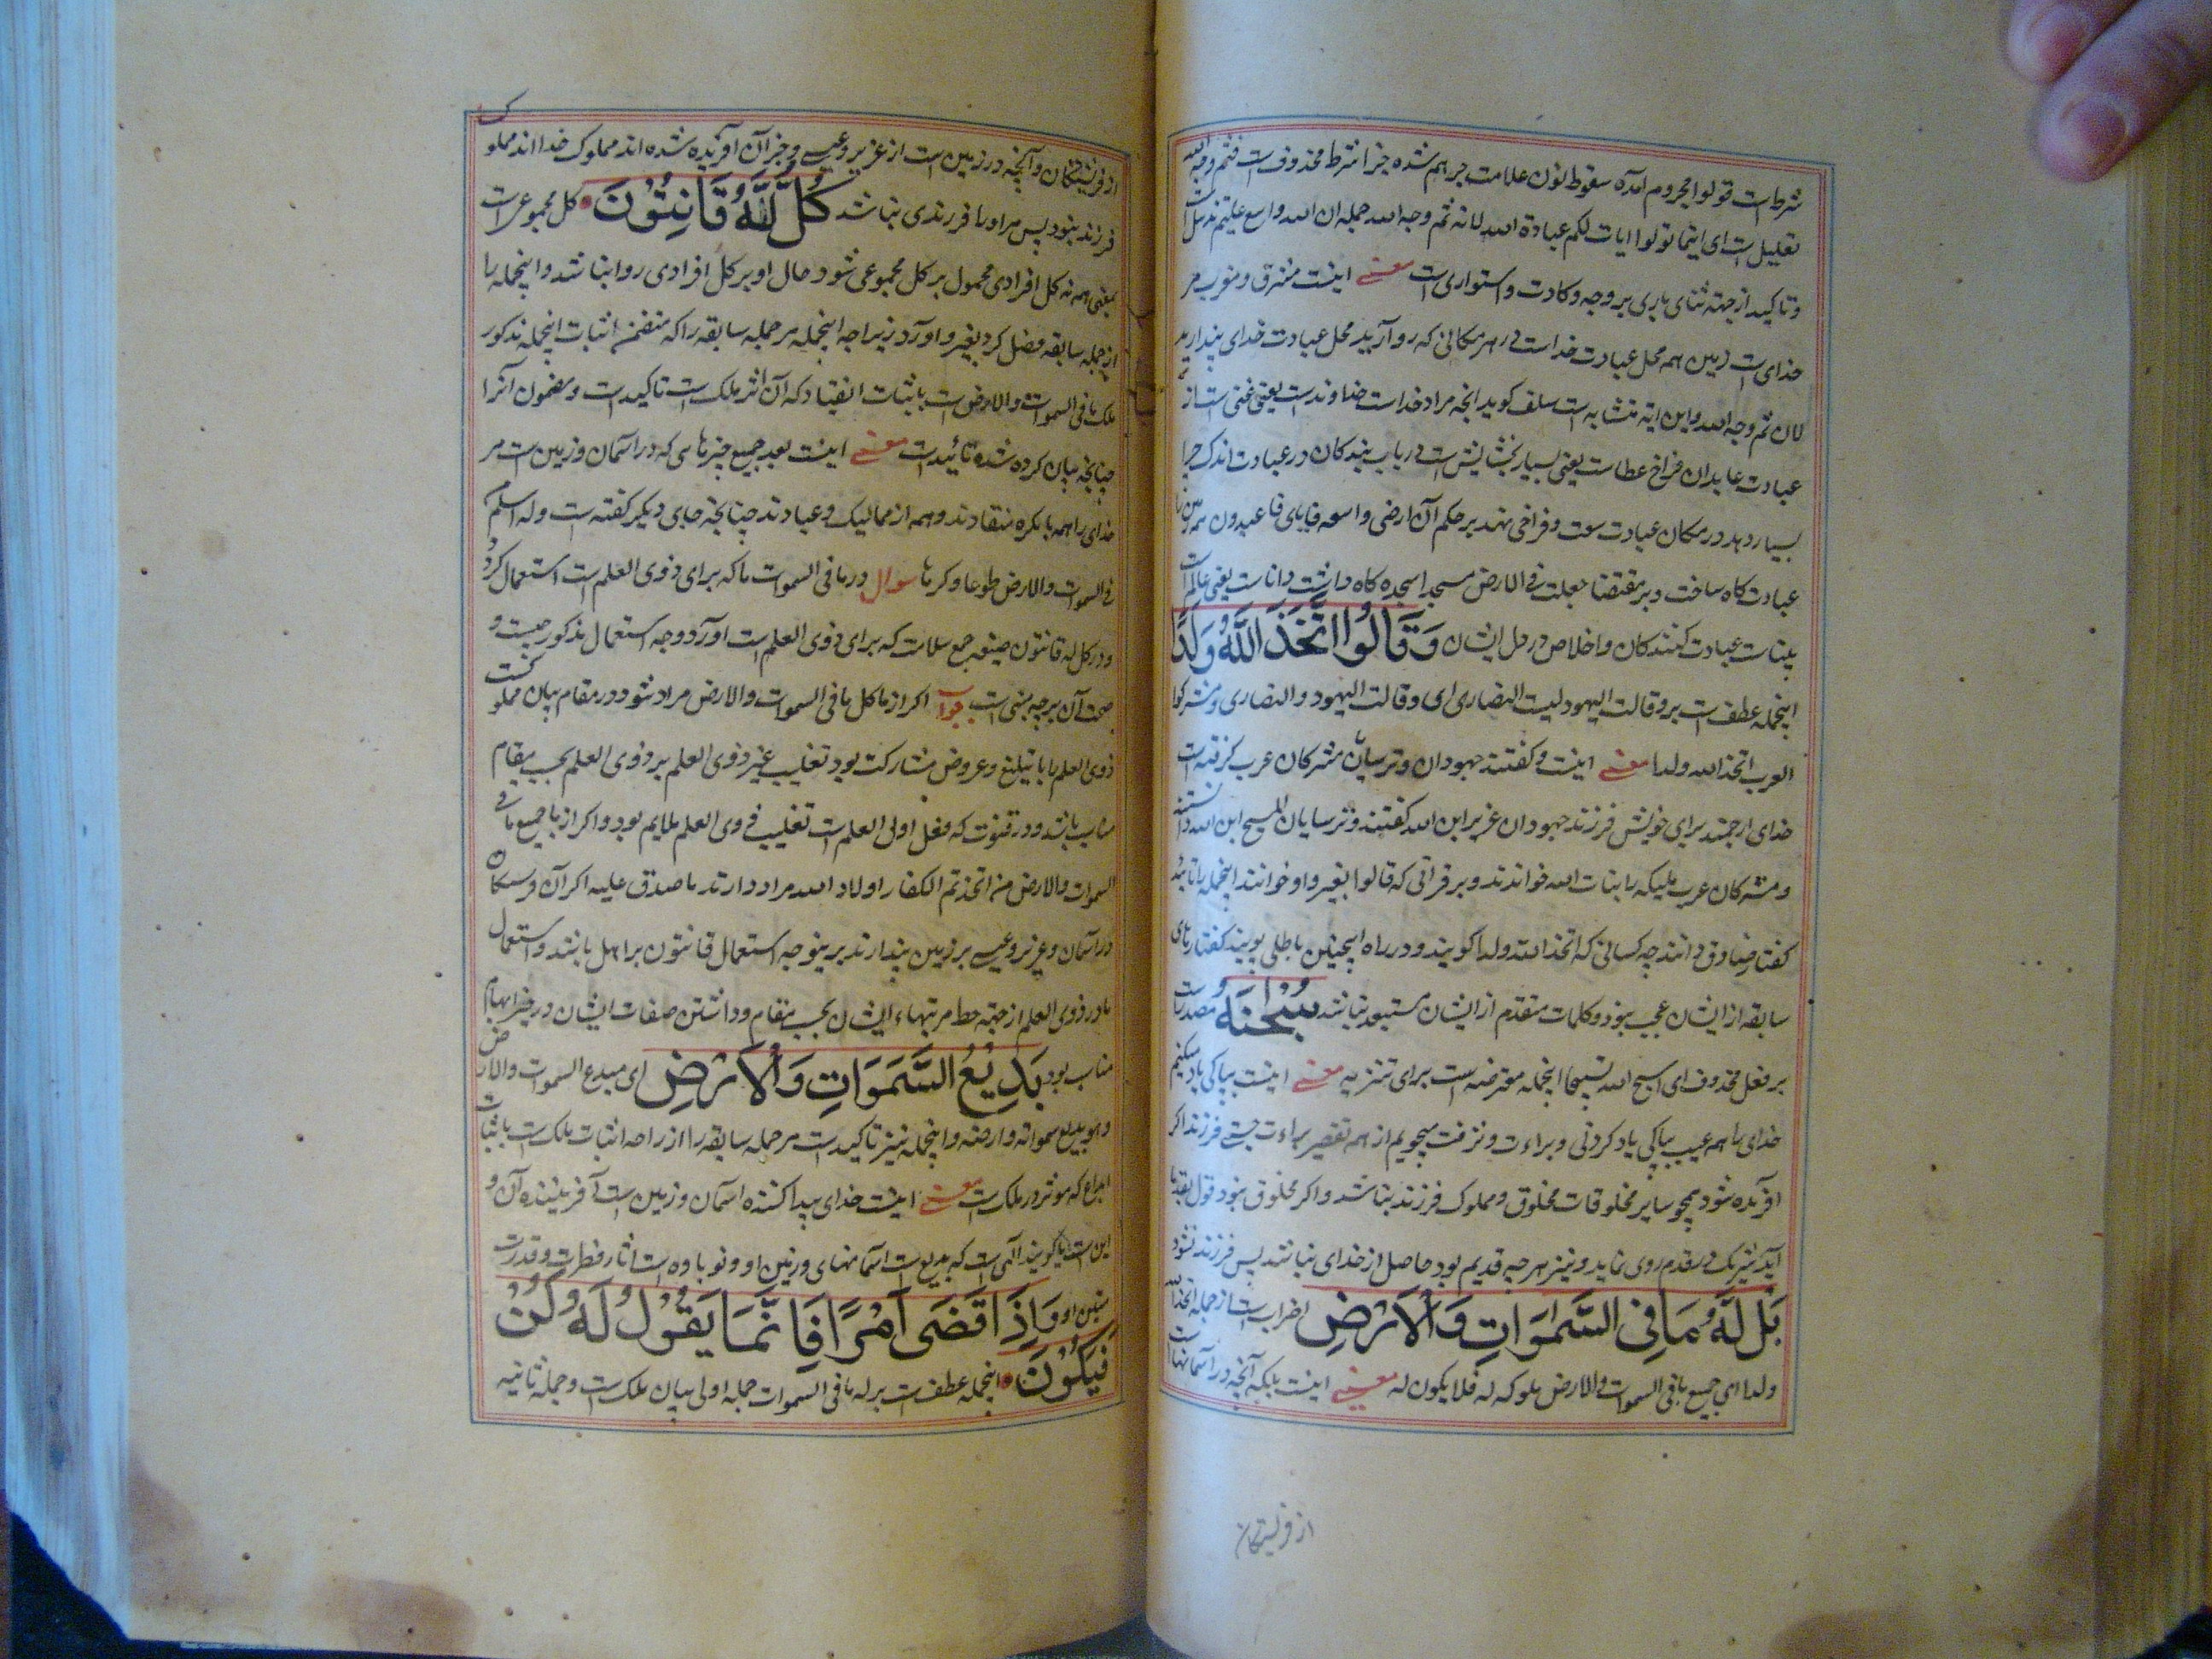 شرط است تولوا مجزوم آمده سقوط نون علامت جزم شده جزا شرط محذوف است فثم وجه الله
تعلیل است ای اینما تولوا لکم عبادة الله لانه ثم وجه الله جمله ان الله واسع علیم تذییل است
و تاکید از جهته ثنای باری بر وجه وکادت و استواری است معنی اینست مشرق و مغرب مر
خدای است زمین همه محل عبادت خداست در هر مکانی که رو آرید محل عبادت خدای پندارید
لان ثم وجه الله و این ایه متشابه است سلف کوید انچه مراد خداست خداوند ست یعنی غنی است از
عبادت عابدان فراخ عطاست یعنی بسیار بخشایش است در باب بندکان در عبادت اندک جزا
بسیار دهد در مکان عبادت سعت و فراخی نهد بر حکم آن ارضی واسعه فایای فاعبدون همه زمین را
عبادت کاه ساخت و بر مقتضا جعلت لی الارض مسجدا سجده کاه داشت دانا ست یعنی عالم است
بنیات عبادت کنندکان و اخلاص در دل ایشان وَقَالُوا اتَّخَذَ اللَّهُ وَلَدًا
اینجمله عطف است بر و قالت الیهود لیست النصاری ای و قالت الیهود و النصاری و مشرکوا
العرب اتخذ الله ولدا معنی اینست و کفتند جهودان و ترسایان مشرکان عرب کرفته است
خدای ارجمند برای خویش فرزند جهودان عزیر ابن الله کفتند و ترسایان المسیح ابن الله دانستند
و مشرکان عرب ملیکه را بنات الله خواندند و بر قراتی که قالوا بغیر واو خوانند اینجمله را تائید
کفتار صادق دانند چه کسانی که اتخذ الله ولدا کویند و در راه اینچنین باطلی پویند کفتارهای
سابقه از ایشان عجب نبود و کلمات متقدم از ایشان مستبعد نباشد سُبْحٰنَهُ مصدر است
بر فعل محذوف ای اسبح الله تسبیحا اینجمله معترضه است برای تنزیه معنی اینست بپاکی یاد میکنیم
خدای را همه عیب بپاکی یاد کردنی و براءت و نزهت میجویم از همه تقصیر براءت جستی فرزند اکر
افریده شود همچو سایر مخلوقات مخلوق و مملوک فرزند نباشد و اکر مخلوق نبود قول بقدما
آید شریک در قدم روی نماید و نیز هر چه قدیم بود حاصل از خدای نباشد پس فرزند نشود
بَلْ لَهُ مَا فِي السَّمٰوَاتِ وَالْأَرْضِ اضراب است از جمله اتخذ الله
ولدا ای جمیع ما فی السموات و الارض ملوکه له فلا یکون له معنی اینست بلکه آنچه در آسمانها است
از فرشتکان
از فرشتکان و آنچه در زمین است از عزیر و عیسی و جز آن آفریده شده اند مملوک خدا اند مملوک
فرزند نبود پس مر او را فرزندی نباشد كُلٌّ لَّهُ قَانِتُونَ کل مجموعی است
بمعنی همه نه کل افرادی محمول بر کل مجموعی شود و حال او بر کل افرادی روا نباشد و اینجمله را
از جمله سابقه فصل کرد بغیر واو آورد زیراچه اینجمله مر جمله سابقه را که متضمن اثبات اینجمله مذکور
ملک ما فی السموات و الارض است باثبات انقیاد که آن اثر ملک است تاکید است و مضمون آنرا
چنانچه بیان کرده شده تائید است معنی اینست بعد جمیع چیزها سی که در اسمان و زمین است مر
خدای را همه با کره منقادند و همه از ممالیک و عبادند چنانچه جای دیکر کفته است و له اسلم
من فی السموات و الارض طوعا و کرها سوال در ما فی السموات ما که برای ذوی العلم است استعمال کرد
و در کل له قانتون صیغه جمع سلامت که برای ذوی العلم است آورد وجه استعمال مذکور چیست و
صحت آن بر چه مبنی است جواب اکر از ما کل ما فی السموات و الارض مراد شود در مقام بیان مملوکیت
ذوی العلم را با تبلیغ و عروض مشارکت بود تغلیب غیر ذوی العلم بر ذوی العلم بحسب مقام
مناسب باشد و در قنوت که فعل اولی العلم است تغلیب ذوی العلم ملایم بود و اکر از ما جمیع ما فی
السموات و الارض من اتخذتم الکفار اولاد الله مراد دارند ما صدق علیه اکر آن فرشتکان
در اسمان و عزیر و عیسی بر زمین پندارند برینوجه استعمال قانتون بر اهل باشد و استعمال
ما در ذوی العلم از جهته حط مرتبهاء ایشان بحسب مقام و داشتن صفات ایشان در حیز ابهام
مناسب بود بَدِيْعُ السَّمَوَاتِ وَالْأَرْضِ ای مبدع السموات و الارض
و هو بدیع سمواته و ارضه و اینجمله نیز تاکید است مر جمله سابقه را از راه اثبات ملک است باثبات
ابداع که موثر در ملک است معنی اینست خدای پیدا کننده اسمان و زمین است آفریننده آن و
این است یا کویند الهی است که بدیع است اسمانهای و زمین او و نو باوه است اثار فطرت و قدرت
متین او وَإِذَا قَضَى أَمْرًا فَإِنَّمَا يَقُوْلُ لَهُ كُنْ
فَيَكُوْنُ اینجمله عطف است بر له ما فی السموات جمله اولی بیان ملک است و جمله ثانیه